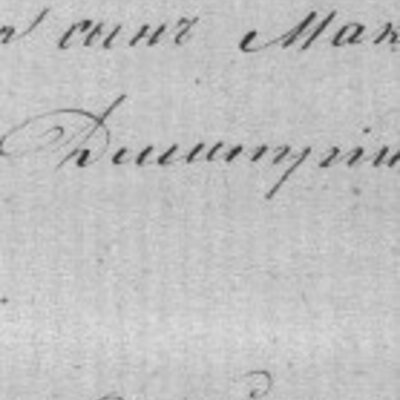 сынъ Мак
Димитрій